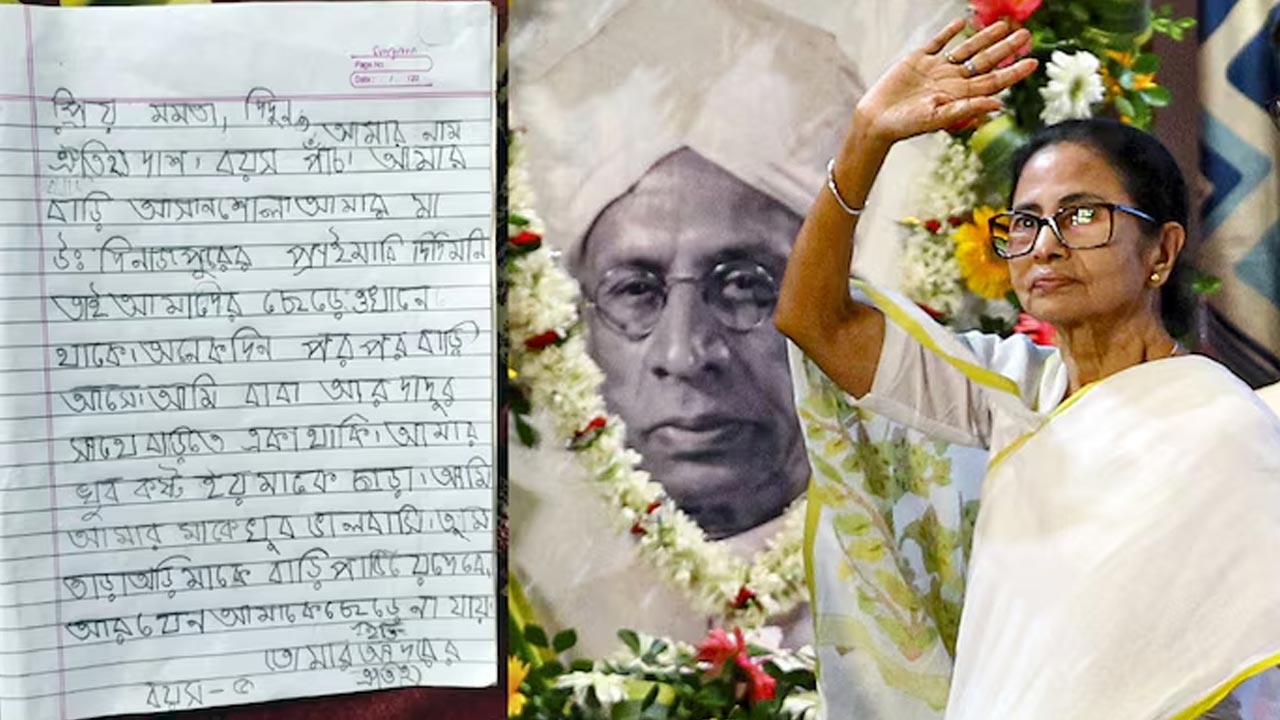 Page No.
Date: / /20
প্রিয় মমতা, দিদুন,
আমার নাম
ঐতিহ্য দাশ। বয়স পাঁচ। আমার
বাড়ি আসানশোল। আমার মা
উঃ দিনাজপুরের প্রাইমারি দিদিমনি
তাই আমাদের ছেড়ে ওখানে
থাকে। অনেকদিন পর পর বাড়ি
আসে। আমি বাবা আর দাদুর
সাথে বাড়িতে একা থাকি। আমার
খুব কষ্ট হয় মাকে ছাড়া। আমি
আমার মাকে খুব ভালবাসি। তুমি
তাড়াতাড়ি মাকে বাড়ি পাঠিয়ে দেবে,
আর যেন আমাকে ছেড়ে না যায়।
ইতি
তোমার আদরের
বয়স - ৫